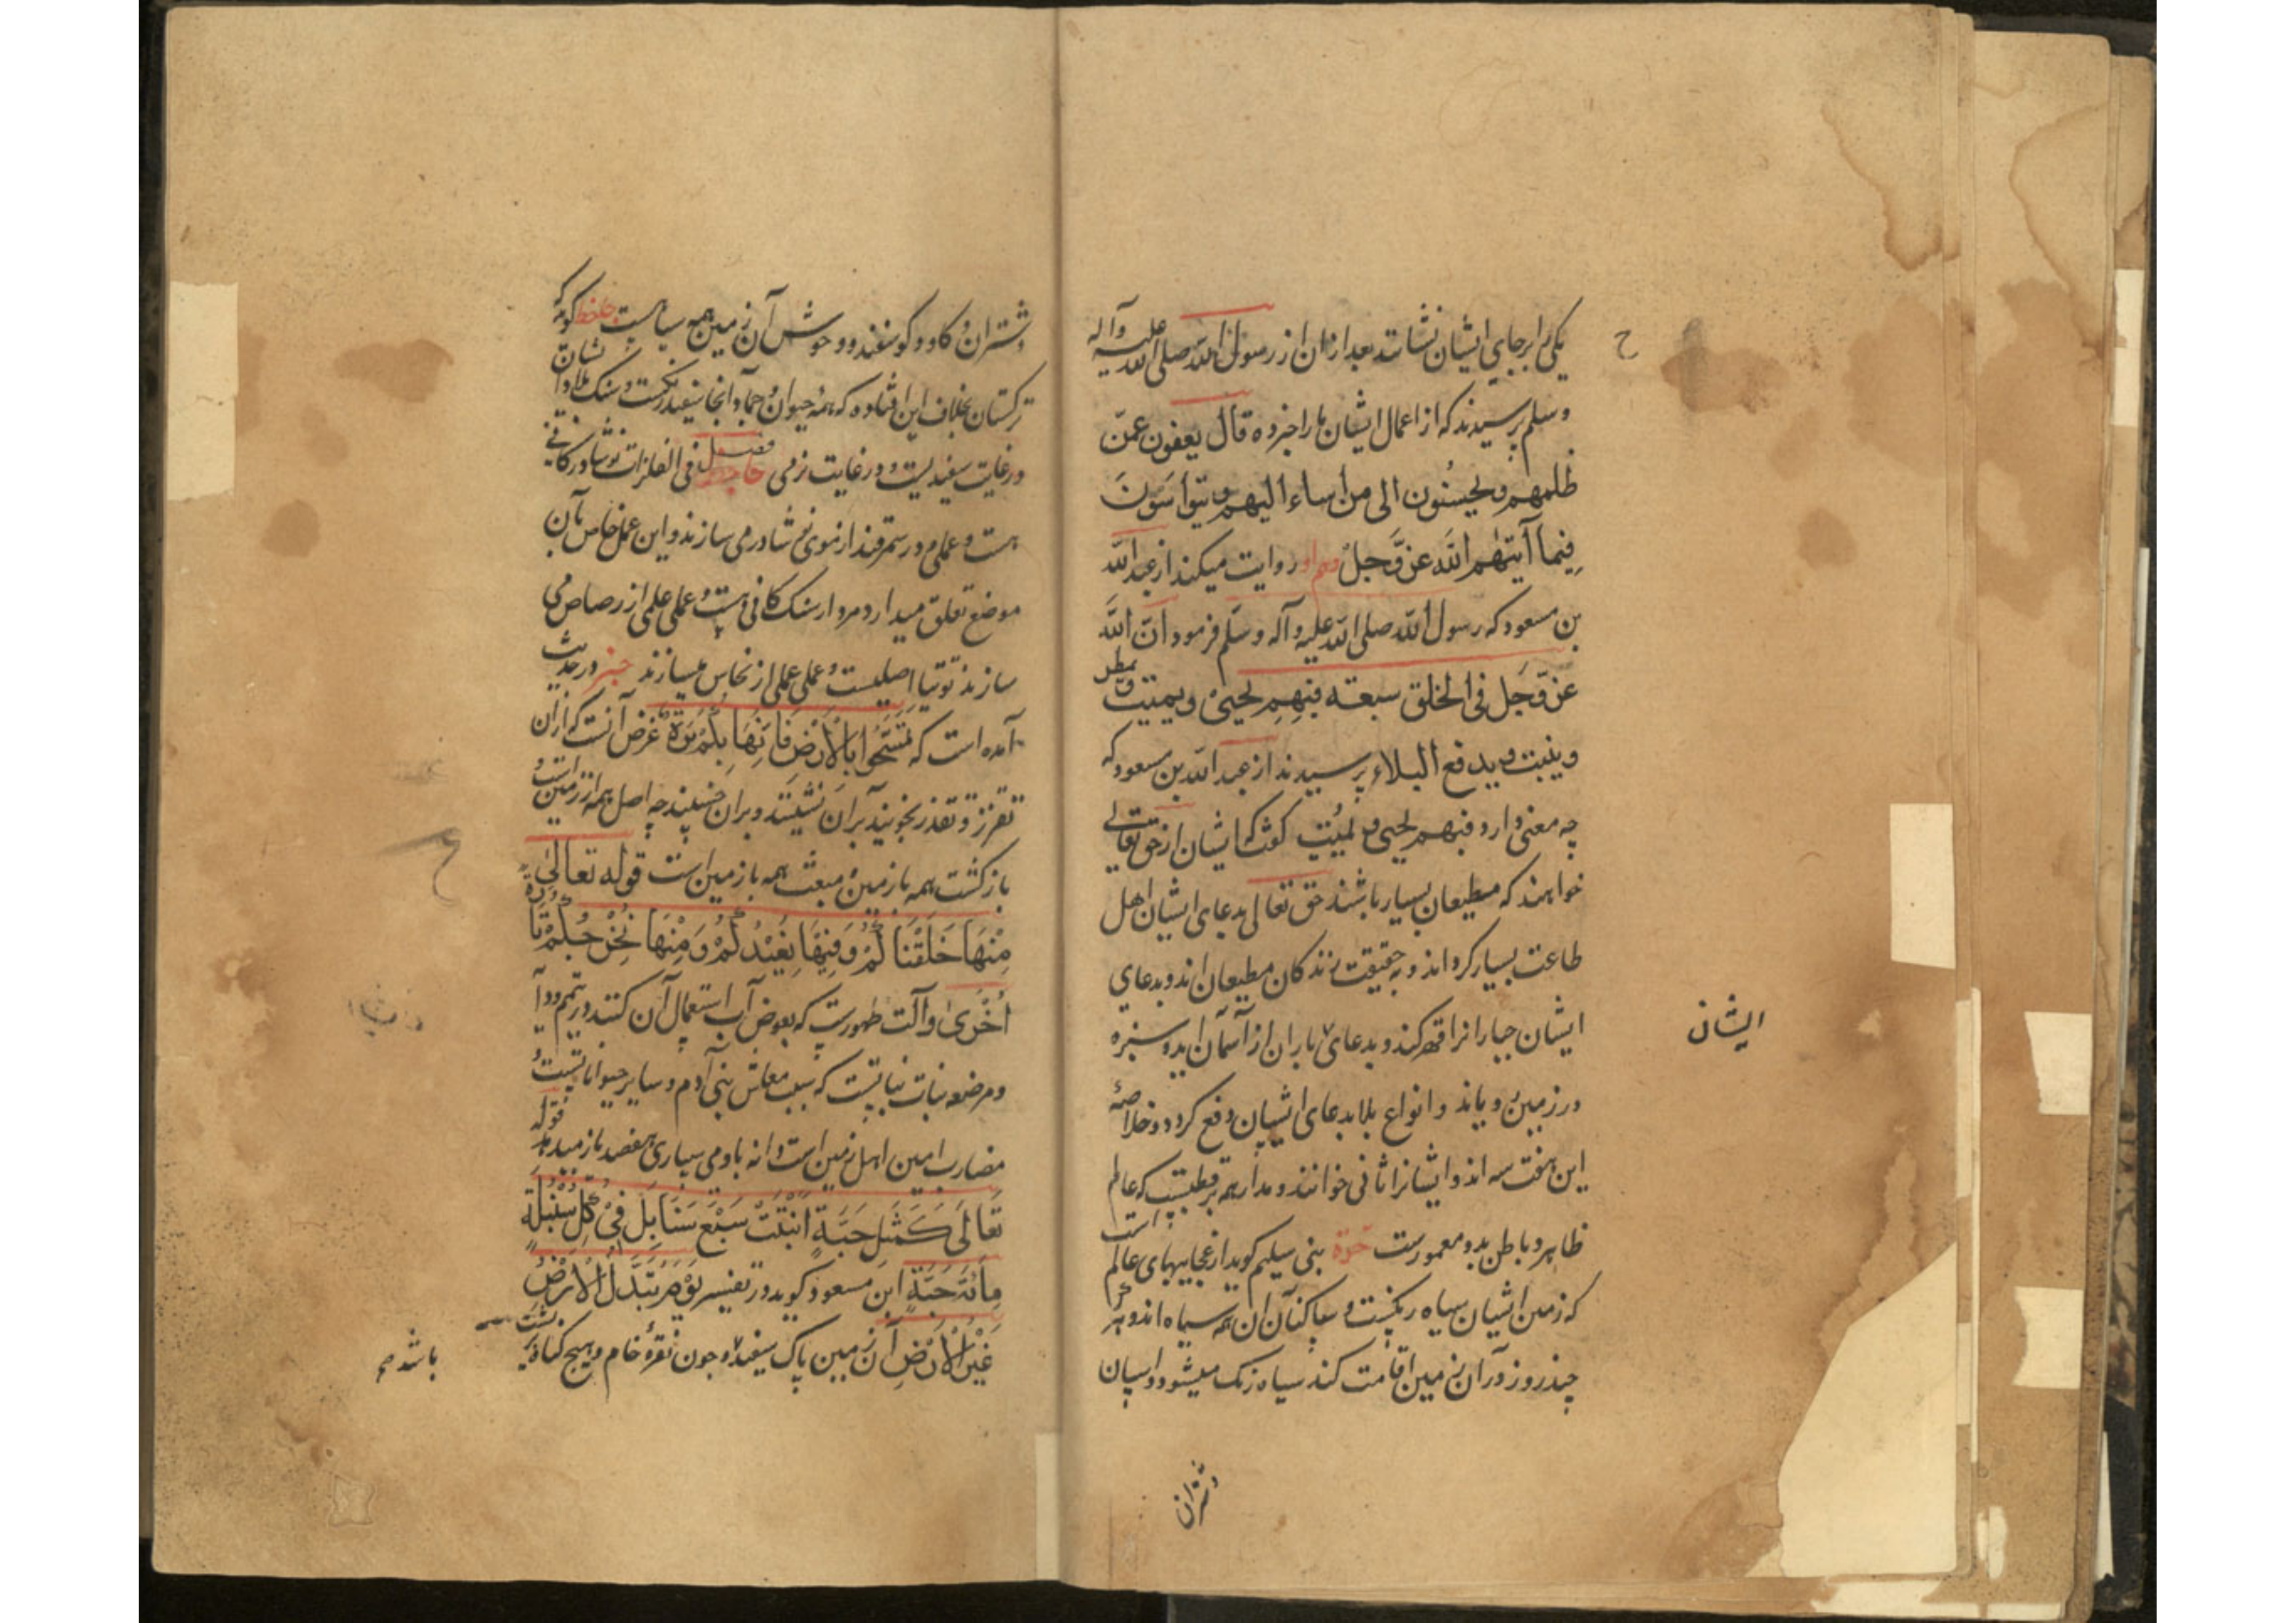 یکی را بر جای ایشان نشاند بعد ازان از رسول الله صلی الله علیه وآله
وسلم پرسیدند که از اعمال ایشان ما را خبر ده قال یعفون عمّن
ظلمهم ویحسنون الی من اساء الیهم ویتواسون
فیما آتیهم الله عزّ وجلّ وهم او روایت میکند از عبد الله
بن مسعود که رسول الله صلی الله علیه وآله وسلّم فرمود انّ الله
عزّ وجلّ فی الخلق سبعة فبهم یحیی ویمیت ویمطر
وینبت ویدفع البلاء پرسیدند از عبد الله بن مسعود که
چه معنی دارد فبهم یحیی ویمیت گفت که ایشان از حق تعالی
خواهند که مطیعان بسیار باشند حق تعالی بدعای ایشان اهل
طاعت بسیار کرداند وبه حقیقت زندکان مطیعان اند وبدعای
ایشان جبارانرا قهر کند وبدعای باران از آسمان اید وسبزه
در زمین رویاند وانواع بلا بدعای ایشان دفع کردد وخلاصهٔ
این هفت سه اند وایشانرا اثافی خوانند ومدار همه بر قطبیست که عالم
ظاهر وباطن بدو معمورست حرّة بنی سلیم کویند از عجایبهای عالم است
که زمین ایشان سیاه رنکست وساکنان آن همه سیاه اند وهر که
چند روز در آن زمین اقامت کند سیاه رنک میشود واسپان
ایشان
وشتران
وشتران وکاو وکوسفند ووحوش آن زمین همه سیاهست حافظ کوید که
ترکستان بخلاف این افتاده که همه حیوان وجماد انجا سفید رنکست وسنک بلاد ایشان
در غایت سفیدیست ودر غایت نرمی فصل حافظ فی الفلزات نوشادر کانی
هست وعملی ودر سمرقند از موی نوشادر می سازند واین عمل خاص بآن
موضع تعلق میدارد ومردارسنک کانی هست وعملی عملی از رصاص می
سازند توتیا اصلیست وعملی عملی از نحاس میسازند خبر در حدیث
آمده است که تمسّحوا بالارض فانها بکم برّة غرض آنست که از آن
تقزز وتقذر نجویند بر آن نشینند وبران خسپند چه اصل همه از زمین است و
بازکشت همه با زمین ومبعث همه باز زمین است قوله تعالی
منها خلقناکم وفیها نعیدکم ومنها نخرجکم تارة
اخری وآلت طهورست که بعوض آب استعمال آن کنند در تیمم
ومرضعه نبات نباتیست که سبب معاش بنی آدم وسایر حیواناتست و
مضارب امین اهل زمین است دانه باو می سپاری هفصد باز میدهد قوله
تعالی کمثل حبّة انبتت سبع سنابل فی کلّ سنبلة
مائة حبّة ابن مسعود کوید در تفسیر یوم تبدّل الارض
غیر الارض آن زمین پاک سفید وچون نقرهٔ خام وهیچ کناه بر پشت
باشد صح